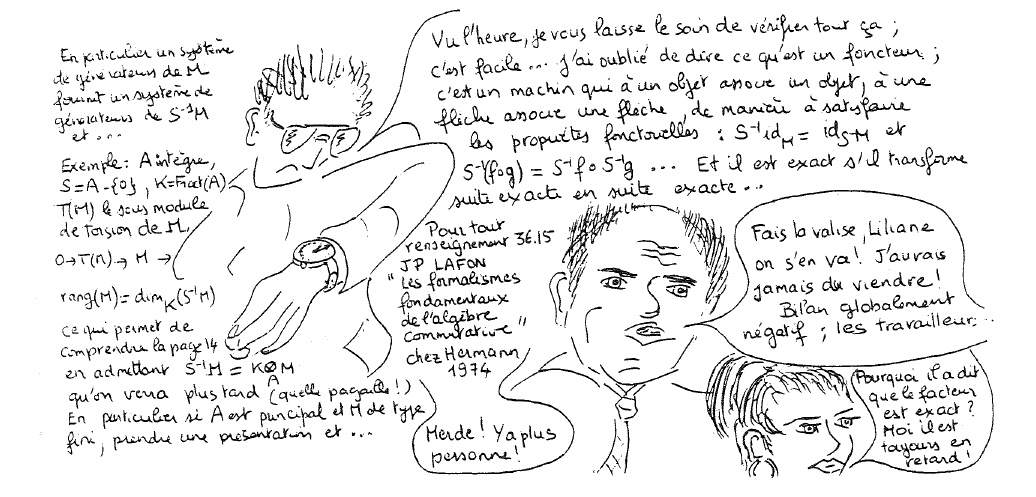 En particulier un système
de générateurs de M
fournit un système de
générateurs de S⁻¹M
et ...
Exemple : A intègre,
S=A-{0}, K=Frac(A)
T(M) le sous module
de torsion de M
0→T(M)→ M →
rang(M)= dim_K(S⁻¹M)
ce qui permet de
comprendre la page 14
en admettant S⁻¹M = K⊗M
A
qu'on verra plus tard (quelle pagaille!)
En particulier si A est principal et M de type
fini, prendre une présentation et ...
Vu l'heure, je vous laisse le soin de vérifier tout ça ;
c'est facile ... j'ai oublié de dire ce qu'est un foncteur ;
c'est un machin qui à un objet associe un objet, à une
flèche associe une flèche, de manière à satisfaire
les propriétés fonctorielles : S⁻¹id_M = id_S⁻¹M et
S⁻¹(fog) = S⁻¹f o S⁻¹g ... Et il est exact s'il transforme
suite exacte en suite exacte ...
Pour tout
renseignement 36.15
JP LAFON
"Les formalismes
fondamentaux
de l'algèbre
commutative"
chez Hermann
1974
Merde! Ya plus
personne!
Fais la valise, Liliane
on s'en va! J'aurais
jamais du viendre!
Bilan globalement
négatif ; les travailleur...
Pourquoi il a dit
que le facteur
est exact?
Moi il est
toujours en
retard!